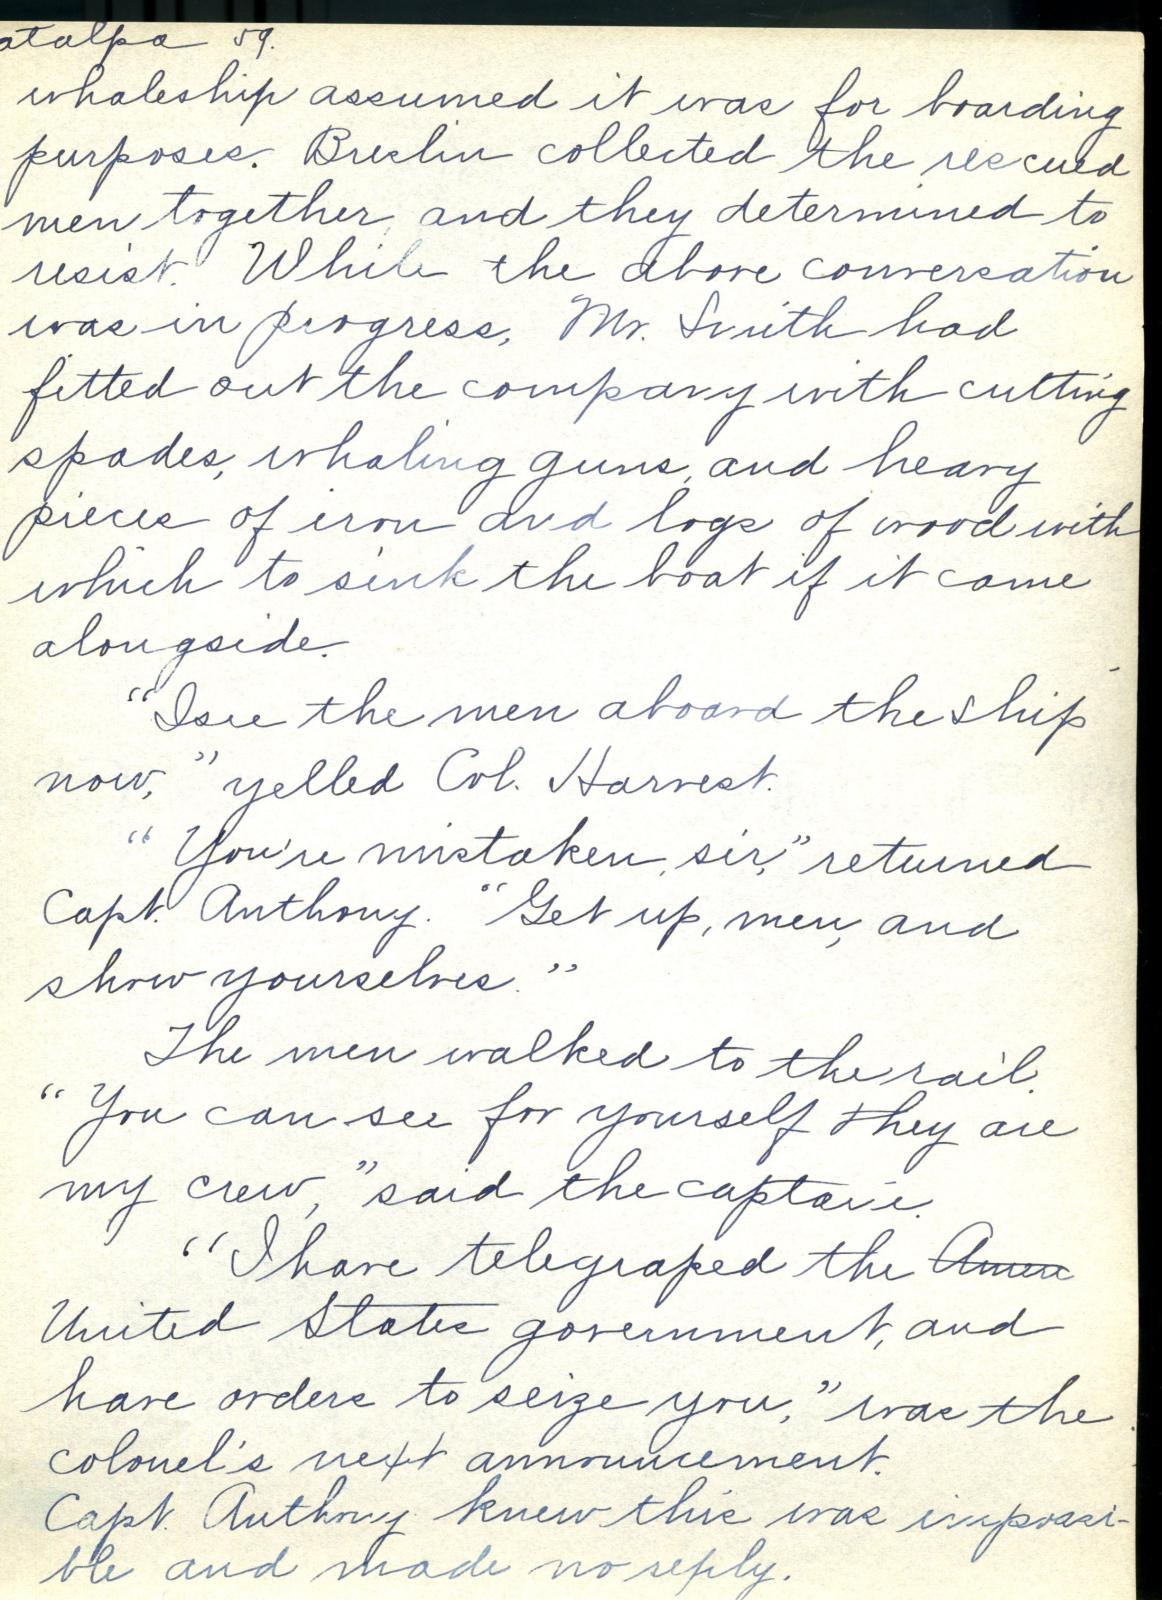 atalpa 59.
whaleship assumed it was for boarding
purposes. Breslin collected the rescued
men together, and they determined to
resist. While the above conversation
was in progress, Mr. Smith had
fitted out the company with cutting
spades, whaling guns, and heavy
pieces of iron and logs of wood with
which to sink the boat if it came
alongside.
"I see the men aboard the ship
now," yelled Col. Harvest.
"You're mistaken, sir," returned
Capt. Anthony. "Get up, men, and
show yourselves."
The men walked to the rail.
"You can see for yourself they are
my crew," said the captain.
"I have telegraped the Amer
United States government, and
have orders to seize you," was the
colonel's next announcement.
Capt. Anthony knew this was impossi-
ble and made no reply.